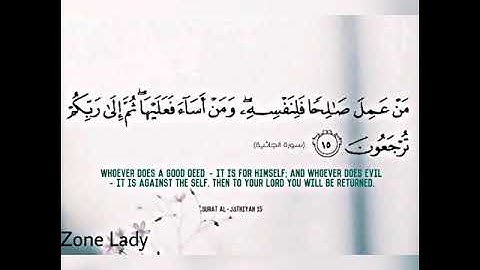 مَنْ عَمِلَ صَالِحًا فَلِنَفْسِهِۦ وَمَنْ أَسَآءَ فَعَلَيْهَا ثُمَّ إِلَىٰ رَبِّكُمْ
تُرْجَعُونَ ١٥ (سورة الجاثية)
WHOEVER DOES A GOOD DEED - IT IS FOR HIMSELF; AND WHOEVER DOES EVIL
- IT IS AGAINST THE SELF. THEN TO YOUR LORD YOU WILL BE RETURNED.
SURAT AL-JATHIYAH 15
Zone Lady